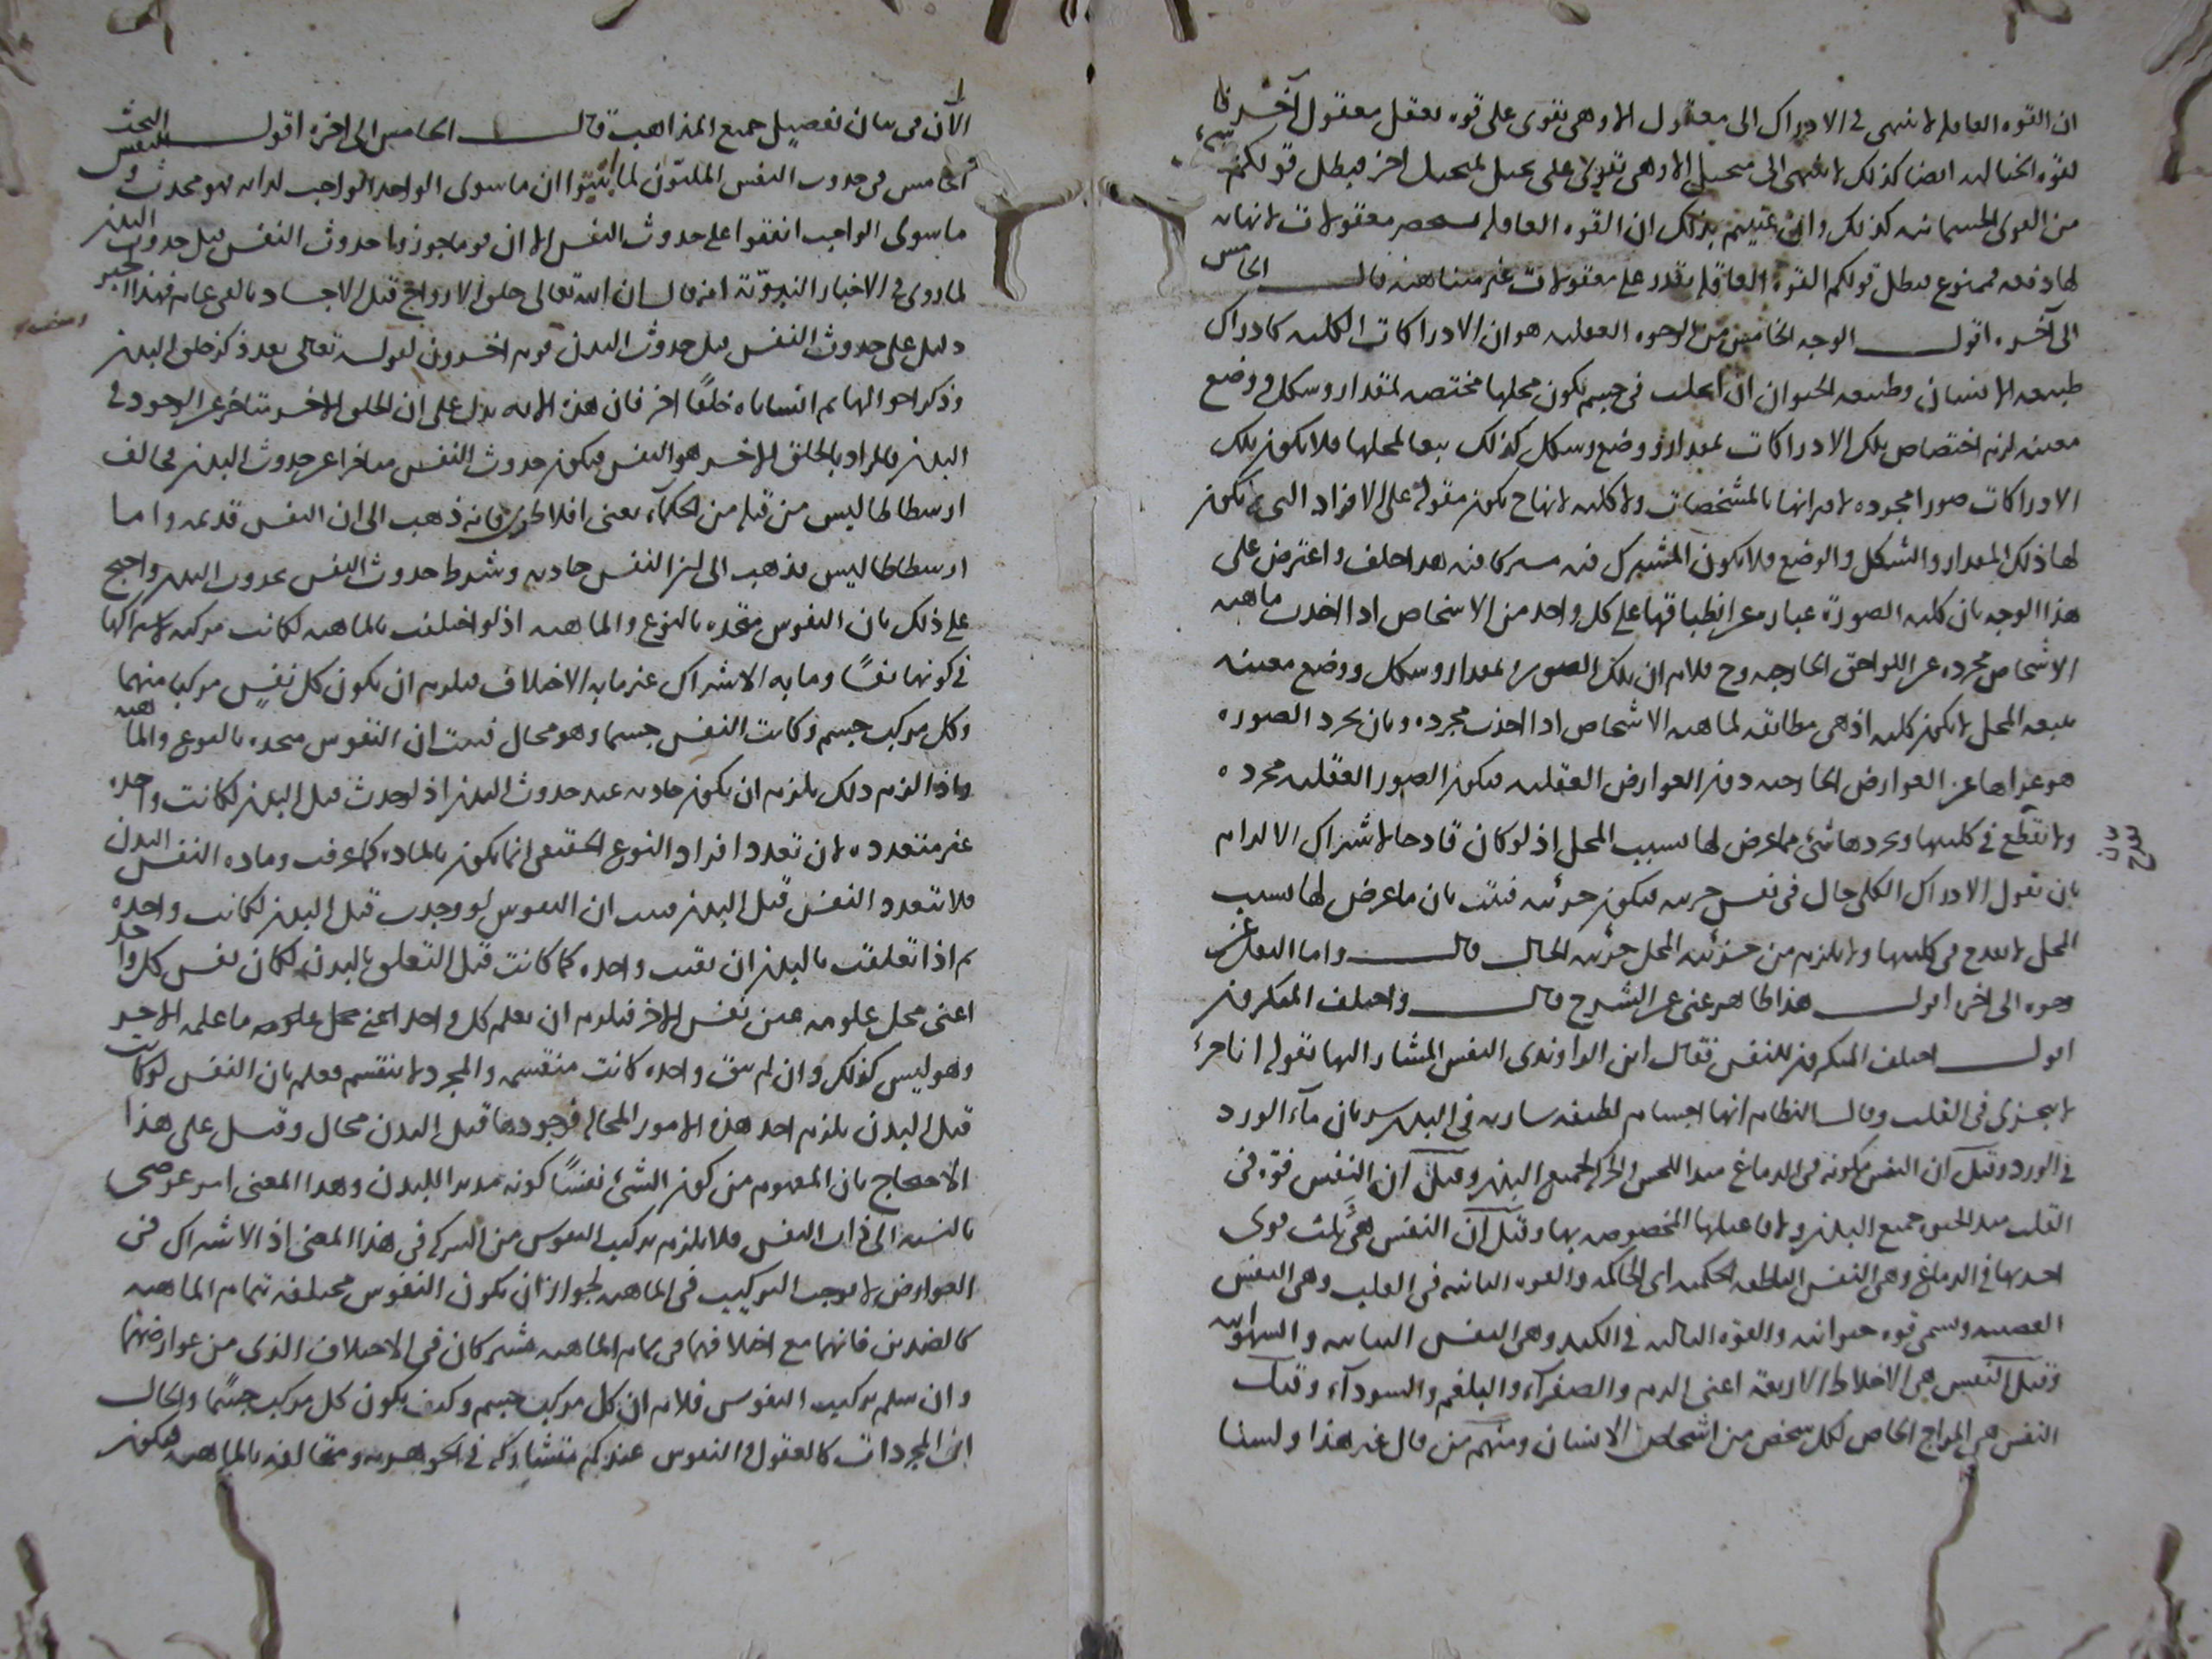 ان القوة العاقلة لا تنتهى فى الادراك الى معقول الا وهى تقوى على قوة تعقل معقول آخر قلنا
القوة الخيالية ايضا كذلك لا تنتهى الى متخيل الا وهى تقوى على تخيل لمتخيل اخر فبطل قولكم
من القوى الجسمانية كذلك وان عنيتم بذلك ان القوة العاقلة تستحضر معقولات لا نهاية
لها دفعة فممنوع فبطل قولكم القوة العاقلة تقدر على معقولات غير متناهية قال الخامس
الى آخره اقول الوجه الخامس من الوجوه العقلية هو ان الادراكات الكلية كادراك
طبيعة الانسان وطبيعة الحيوان ان حلت فى جسم يكون محلها مختصة لمقدار وشكل ووضع
معينة لزم اختصاص تلك الادراكات بمقدار ووضع وشكل كذلك تبعا لمحلها فلا يكون تلك
الادراكات صورا مجردة لاقترانها بالمشخصات ولا كلية لانها ح يكون مقولة على الافراد التى لا يكون
لها ذلك المقدار والشكل والوضع فلا يكون المشترك فيه مشتركا فيه هذا خلف واعترض على
هذا الوجه بان كلية الصورة عبارة عن انطباقها على كل واحد من الاشخاص اذا اخذت ماهية
الاشخاص مجردة عن اللواحق الخارجية وح فلا نم ان تلك الصورة لمقدار وشكل ووضع معينة
بتبعية المحل لا يكون كلية اذ هى مطابقة لماهية الاشخاص اذا اخذت مجردة وبان تجرد الصورة
هو عراها عن العوارض الخارجية دون العوارض العقلية فيكون الصور العقلية مجردة
ولا تقطع فى كليتها وتجردها شئ مما عرض لها بسبب المحل اذ لو كان قادحا لاشتراك الالزام
بان نقول الادراك الكلى حال فى نفس جزئية فيكون جزئية فثبت بان ما عرض لها بسبب
المحل لا يقدح فى كليتها ولا يلزم من جزئية المحل جزئية الحال قال واما النقل فمن
وجوه الى اخره اقول هذا ظاهر غنى عن الشرح قال واختلف المنكرون
اقول اختلف المنكرون للنفس فقال ابن الراوندى النفس المشار اليها بقوله انا جزء
لا يتجزى فى القلب وقال النظام انها اجسام لطيفة سارية فى البدن سريان مآء الورد
فى الورد وقيل ان النفس مكونة فى الدماغ مبدا للحس والحركة لجميع البدن وقيل ان النفس قوة فى
القلب مبدا لحس جميع البدن ولافاعيلها المخصوصة بها وقيل ان النفس هى ثلث قوى
احديها فى الدماغ وهى النفس الناطقة الحكمية اى الحاكمة والقوة الثانية فى القلب وهى النفس
الغضبية ويسمى قوة حيوانية والقوة الثالثة فى الكبد وهى النفس النباتية والشهوانية
وقيل النفس هى الاخلاط الاربعة اعنى الدم والصفرآء والبلغم والسودآء وقيل
النفس هى المزاج الخاص لكل شخص من اشخاص الانسان ومنهم من قال غير هذا ولسنا
الآن فى بيان تفصيل جميع المذاهب قال الخامس الى اخره اقول البحث
الخامس فى حدوث النفس المليون لما اثبتوا ان ما سوى الواحد الواجب لذاته فهو محدث والنفس
ما سوى الواجب اتفقوا على حدوث النفس الا ان قوما جوزوا حدوث النفس قبل حدوث البدن
لما روى فى الاخبار النبوية انه قال ان الله تعالى خلق الارواح قبل الاجساد بالفى عام فهذا الخبر
دليل على حدوث النفس قبل حدوث البدن قوم اخرون لقوله تعالى بعد ذكر خلق البدن
وذكر احوالها ثم انشاناه خلقًا اخر فان هذه الاية يدل على ان الخلق الاخر متاخر عن الوجود فى
البدن فالمراد بالخلق الاخر هو النفس فيكون حدوث النفس متاخرا عن حدوث البدن مخالف
ارسطاطاليس من قبله من الحكمآء يعنى افلاطون فانه ذهب الى ان النفس قديمة واما
ارسطاطاليس فذهب الى ان النفس حادثة وشرط حدوث النفس بحدوث البدن واحتج
على ذلك بان النفوس متحدة بالنوع والماهية اذ لو اختلفت بالماهية لكانت مركبة لاشتراكها
فى كونها نفسًا وما به الاشتراك غير ما به الاختلاف فيلزم ان يكون كل نفس مركبا منهما
وكل مركب جسم فكانت النفس جسما وهو محال فثبت ان النفوس متحدة بالنوع والماهية
واذا لزم ذلك يلزم ان يكون حادثة عند حدوث البدن اذ لو حدث قبل البدن لكانت واحدة
غير متعددة لان تعدد افراد النوع الحقيقى انما يكون بالمادة كما عرفت ومادة النفس البدن
فلا تتعدد النفس قبل البدن فثبت ان النفوس لو وجدت قبل البدن لكانت واحدة
ثم اذا تعلقت بالبدن ان بقيت واحدة كما كانت قبل التعلق بالبدن لكان نفس كل واحد
اعنى محل علومه عين نفس الاخر فيلزم ان يعلم كل واحد اعنى محل علومه ما علمه الاخر
وهو ليس كذلك وان لم تبق واحدة كانت منقسمة والمجرد لا ينقسم فعلم بان النفس لو كانت
قبل البدن يلزم احد هذه الامور المحالة فوجودها قبل البدن محال وقيل على هذا
الاحتجاج بان المفهوم من كون الشئ نفسًا كونه مدبرا للبدن وهذا المعنى امر عرضى
بالنسبة الى ذات النفس فلا يلزم تركيب النفوس من التركب فى هذا المعنى اذ الاشتراك فى
العوارض لا يوجب التركيب فى الماهية لجواز ان يكون النفوس مختلفة بتمام الماهية
كالضدين فانهما مع اختلافهما فى تمام الماهية مشتركان فى الاختلاف الذى من عوارضهما
وان سلم تركيب النفوس فلا نم ان كل مركب جسم وكيف يكون كل مركب جسمًا والحال
ان المجردات كالعقول والنفوس عندكم متشاركة فى الجوهرية ومتخالفة بالماهية فيكون